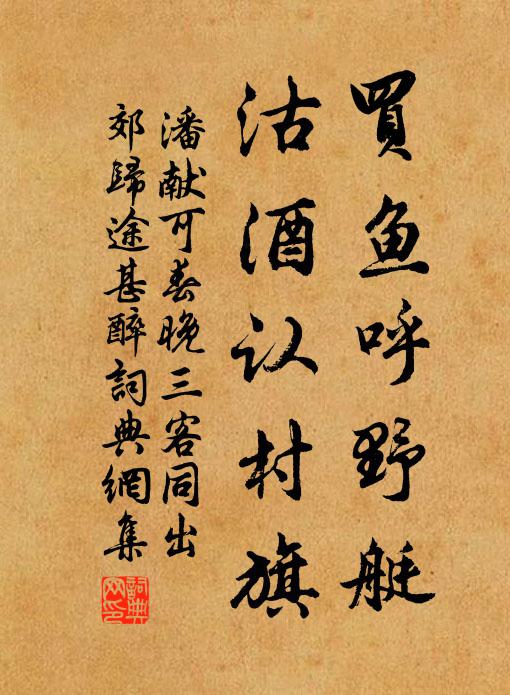 買鱼呼野艇
沽酒认村旗
潘献可春晚三客同出
郊歸途甚醉詞典網集
詞典
网印